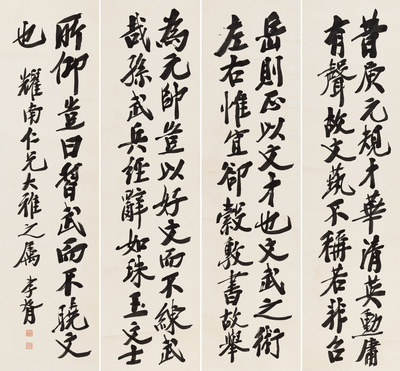 昔庾元規才華清英勳庸
有聲故文藝不稱若非台
岳則正以文才也文武之術
左右惟宜卻縠敦書故舉
為元帥豈以好文而不練武
哉孫武兵經辭如珠玉文士
所仰豈曰習武而不曉文
也
耀南仁兄大雅之屬 李